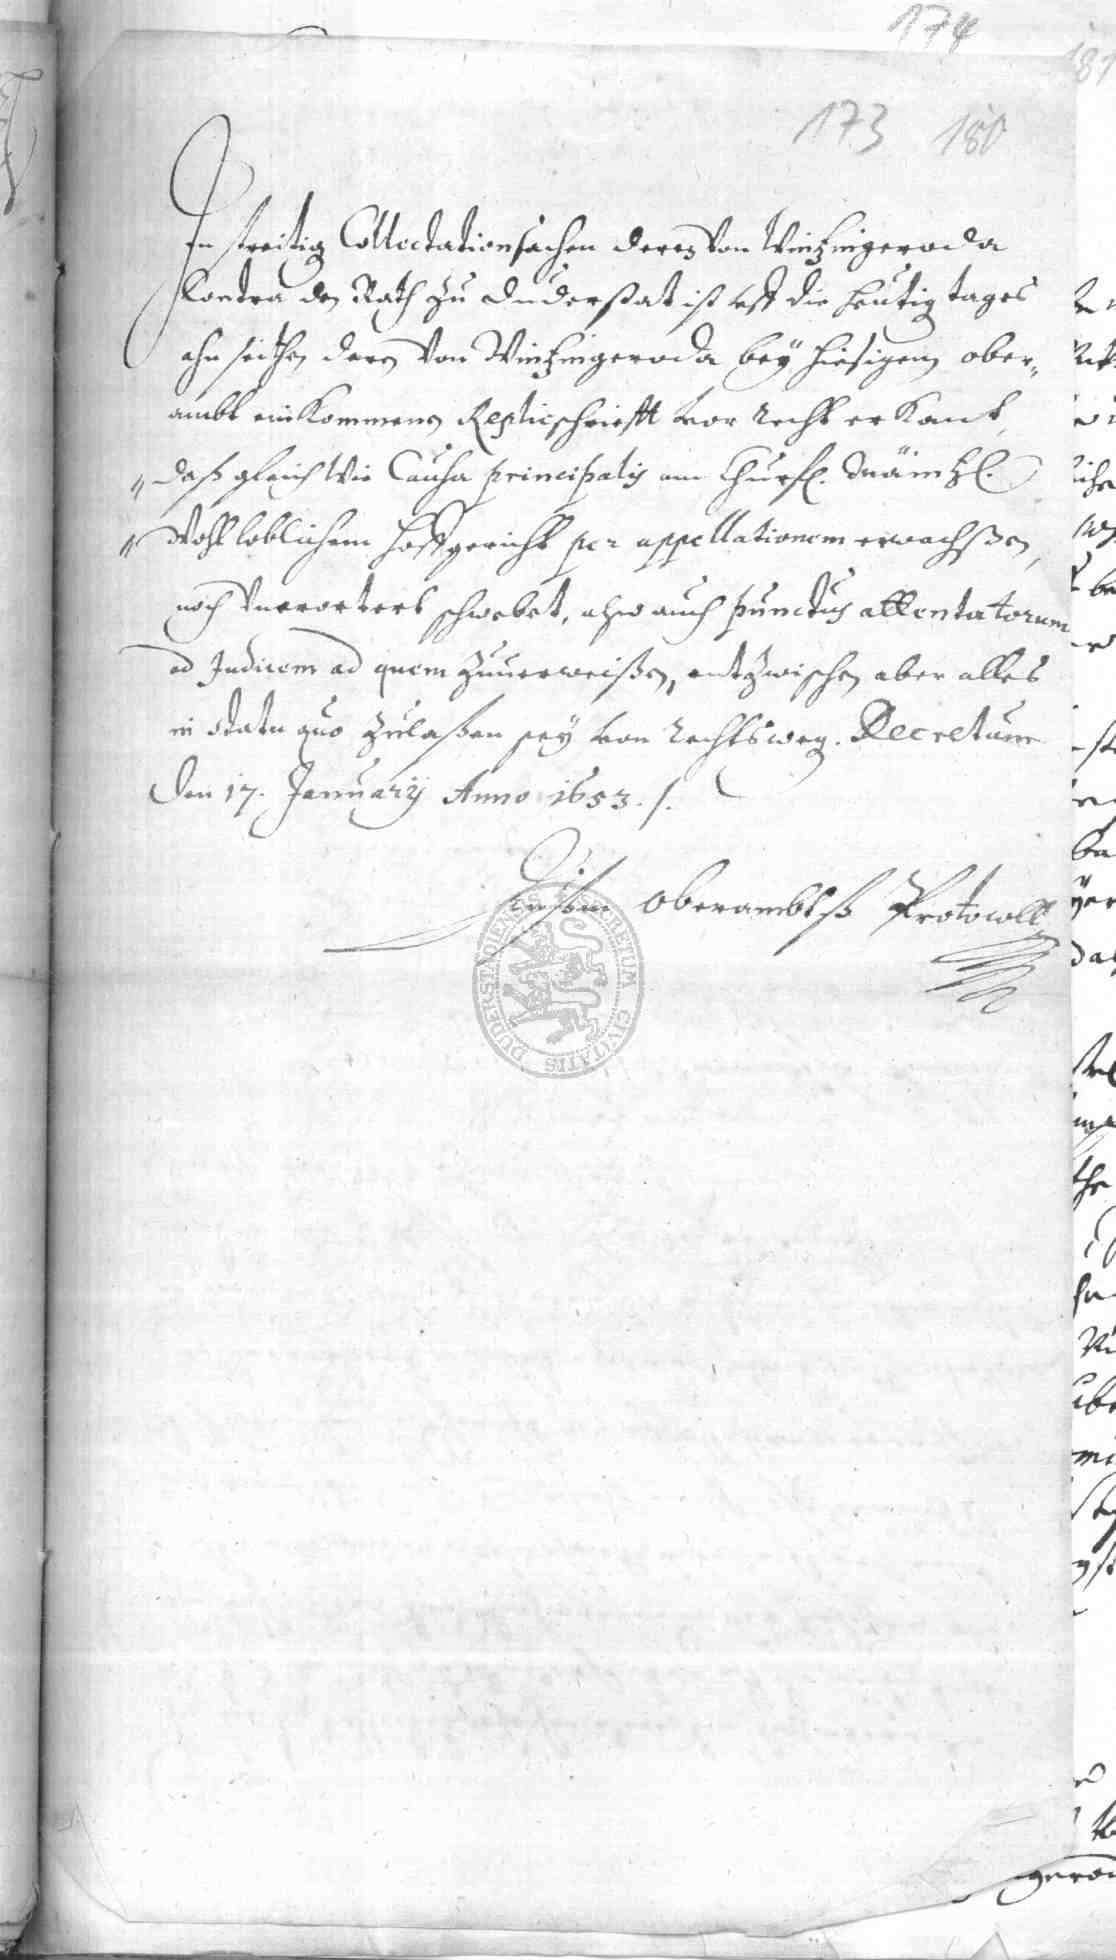 174
181
173 180
In streitig Collectationsachen deren Von Wintzingeroda
Contra den Rath zu Duderstat ist uff die heutig tages
ahn seithen deren Von Wintzingeroda bey hiesigem ober-
ambt einkommens Replicschrifft vor recht erkant,
" daß gleich wie Causa principalis am Churfl. Mäintzl.
" Wohlloblichem hoffgericht per appellationem erwachßen,
noch Unerortert schwebet, also auch punctus attentatorum
ad Judicem ad quem zuverweißen, entzwischen aber alles
in statu quo zulaßen sey von rechtsweg. Decretum
den 17. January Anno 1653 ./.
oberambtß Protocoll
DUDERSTADIENSIS SECRETUM CIVITATIS